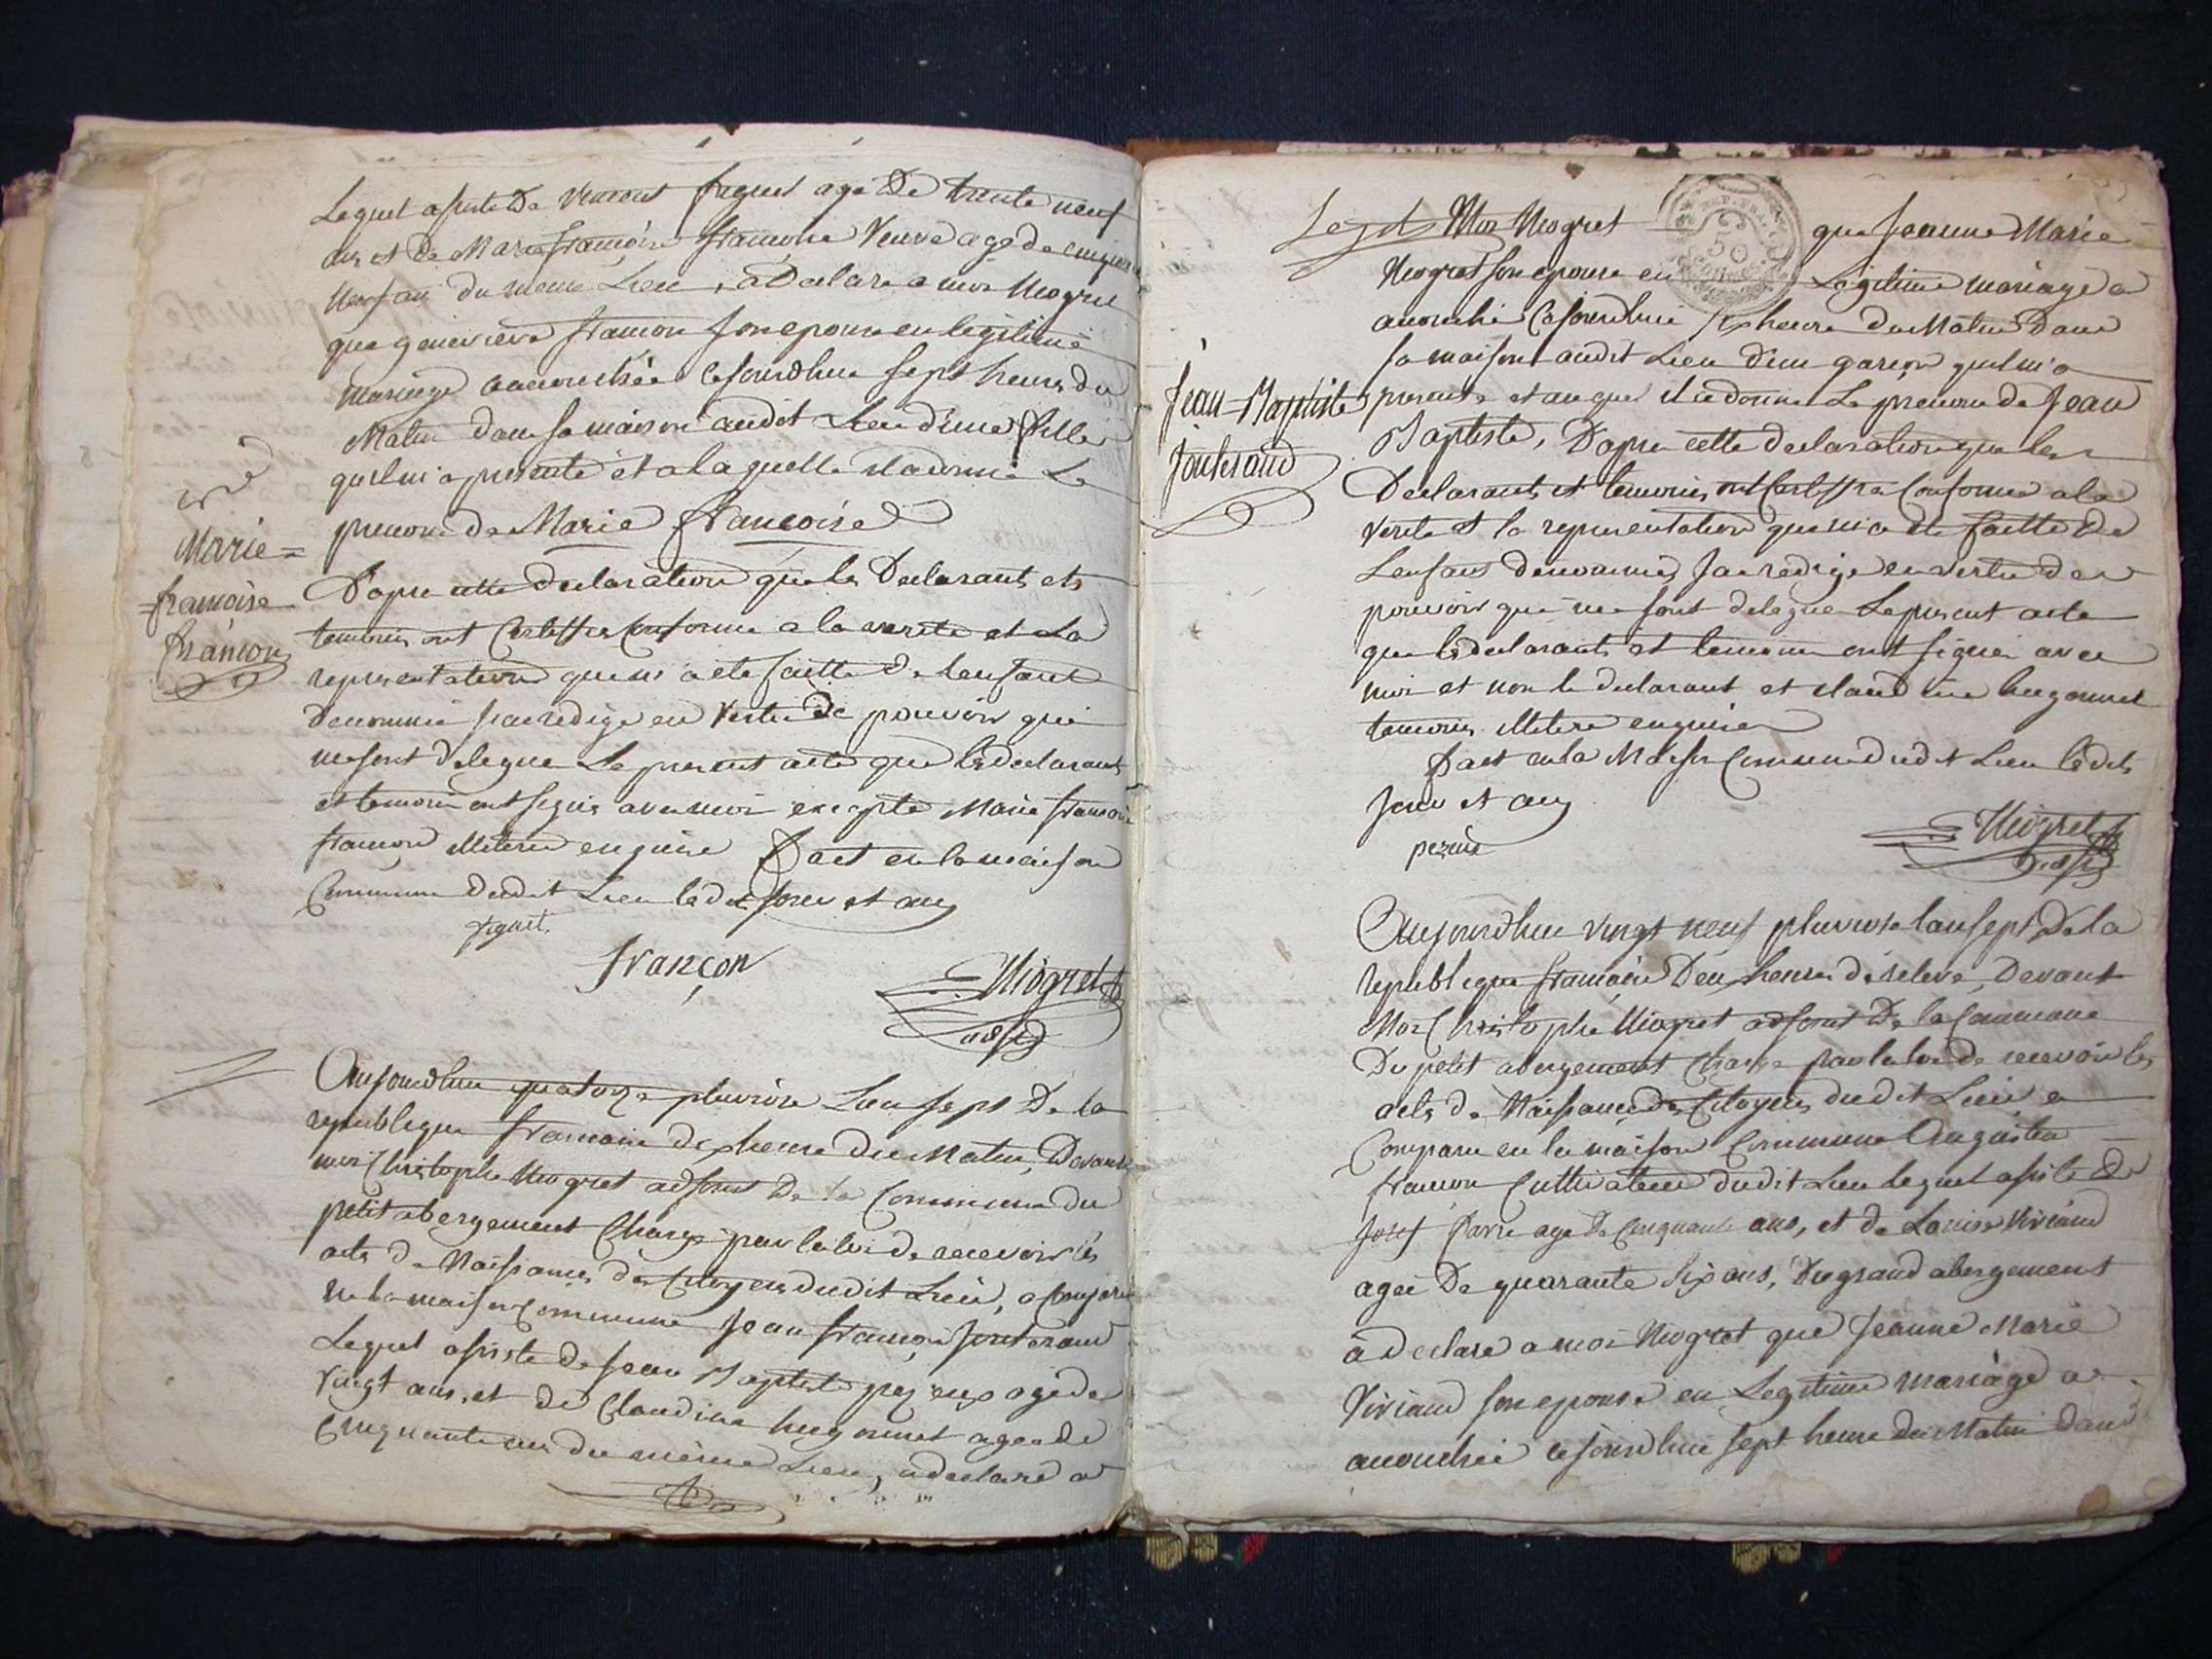 Lequel assiste De vincent figuet age De trente neuf
ans et De Marie françoise françon Veuve age de cinquante
neuf ans du meme Lieu, a Declare a moi Miogret
que genevieve françon son epouse en légitime
mariage a accouchée cejourdhui sept heures du
Matin dans sa maison audit Lieu d'une fille
quil m'a presenté et a la quelle il a donné Le
prenom de Marie françoise
Marie =
= françoise
françon
D'apre cette declaration que les Declarants et
temoins ont Certiffiés Conforme a la verité et La
representation qui m'a eté faitte De lenfant
Denommé jai redigé en Vertu de pouvoir qui
me sont delegué Le present acte que le declarant
et temoin ont signé avec moi excepté Marie françoise
françon illiteré enquise fait en la maison
Commune dudit Lieu ledit jour et an
figuet
françon
Miogret
adjt
Aujourdhuy quatorze pluviose Lan sept De la
republique françoise dix heure du Matin, Devant
moi Christophe Miogret adjoint De la Commune du
petit abergement Chargé par la loi de recevoir les
acts de Naissances des Citoyens dudit Lieu, a Comparu
en la maison Commune Jean françois Jouteraud
Lequel assisté de Jean Baptiste age de
vingt ans, et de Claudine hugonnet agée de
Cinquante ans du même Lieu, a declaré a
Moi Miogret que Jeanne Marie
Miogret son epouse en Légitime mariage a
accouché Cejourdhui six heure du Matin dans
sa maison audit Lieu d'un garçon quil m'a
Jean-Baptiste
Jouteraud
presenté et auquel il a donné Le prenom de Jean
Baptiste, D'apre cette declaration que les
Declarants et temoins ont Certiffié Conforme a la
verité et la representation qui m'a eté faitte De
Lenfant denommé, Jai redigé en vertu de
pouvoir qui me sont delegué Le present acte
que le declarants et temoin ont signé avec
moi et non le declarant et claudine hugonnet
temoins illiteré enquis
fait en la Maison Commune dudit Lieu ledit
jour et an
Miogret
adjt
Aujourdhui vingt neuf pluviose lan sept De la
republique françoise Deux heures de releve, Devant
Moi Christophe Miogret adjoint De la Commune
Du petit abergement Chargé par la loi de recevoir les
acts de Naissance des Citoyens dudit Lieu a
Comparu en la maison Commune Augustin
françon Cultivateur dudit Lieu lequel assisté De
Josef favre age De Cinquante ans, et de Louise Viviand
agée De quarante six ans, Du grand abergement
a declaré a moi Miogret que Jeanne Marie
Viviand son epouse en Legitime mariage a
accouchée cejourdhui sept heure du Matin dans